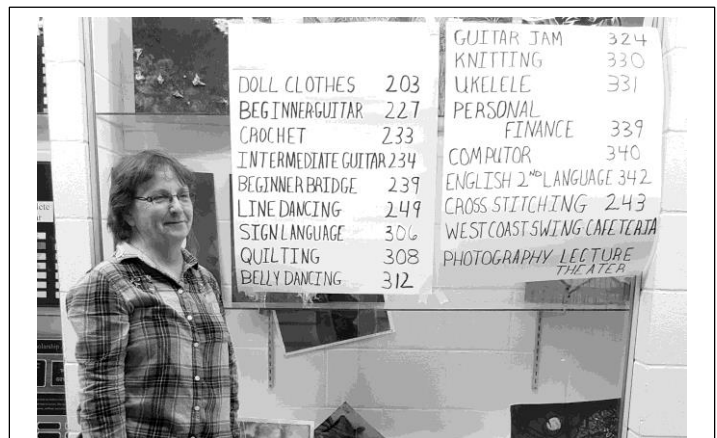 DOLL CLOTHES 203
BEGINNER GUITAR 227
CROCHET 233
INTERMEDIATE GUITAR 234
BEGINNER BRIDGE 239
LINE DANCING 249
SIGN LANGUAGE 306
QUILTING 308
BELLY DANCING 312
GUITAR JAM 324
KNITTING 330
UKELELE 331
PERSONAL
FINANCE 339
COMPUTOR 340
ENGLISH 2ND LANGUAGE 342
CROSS STITCHING 243
WEST COAST SWING CAFETERIA
PHOTOGRAPHY LECTURE
THEATER